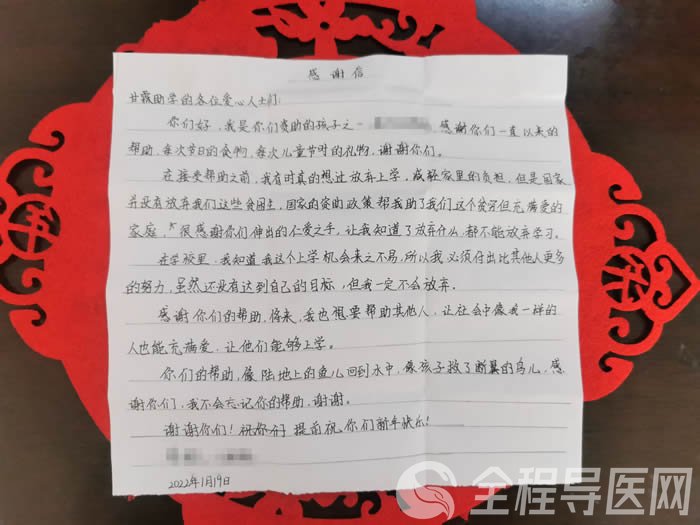 感谢信
甘霖助学的各位爱心人士们:
你们好,我是你们资助的孩子之一 感谢你们一直以来的
帮助,每次节日的食物,每次儿童节时的礼物,谢谢你们。
在接受帮助之前,我有时真的想过放弃上学,减轻家里的负担,但是国家
并没有放弃我们这些贫困生,国家的资助政策帮我助了我们这个贫穷但充满爱的
家庭,很感谢你们伸出的仁爱之手,让我知道了放弃什么,都不能放弃学习。
在学校里,我知道我这个上学机会来之不易,所以我必须付出比其他人更多
的努力,虽然还没有达到自己的目标,但我一定不会放弃.
感谢你们的帮助,将来,我也想要帮助其他人,让社会中像我一样的
人也能充满爱,让他们能够上学。
你们的帮助,像陆地上的鱼儿回到水中,像孩子救了断翼的鸟儿,感
谢你们,我不会忘记你的帮助,谢谢。
谢谢你们!祝你们 提前祝你们新年快乐!
2022年1月19日
全程导医网